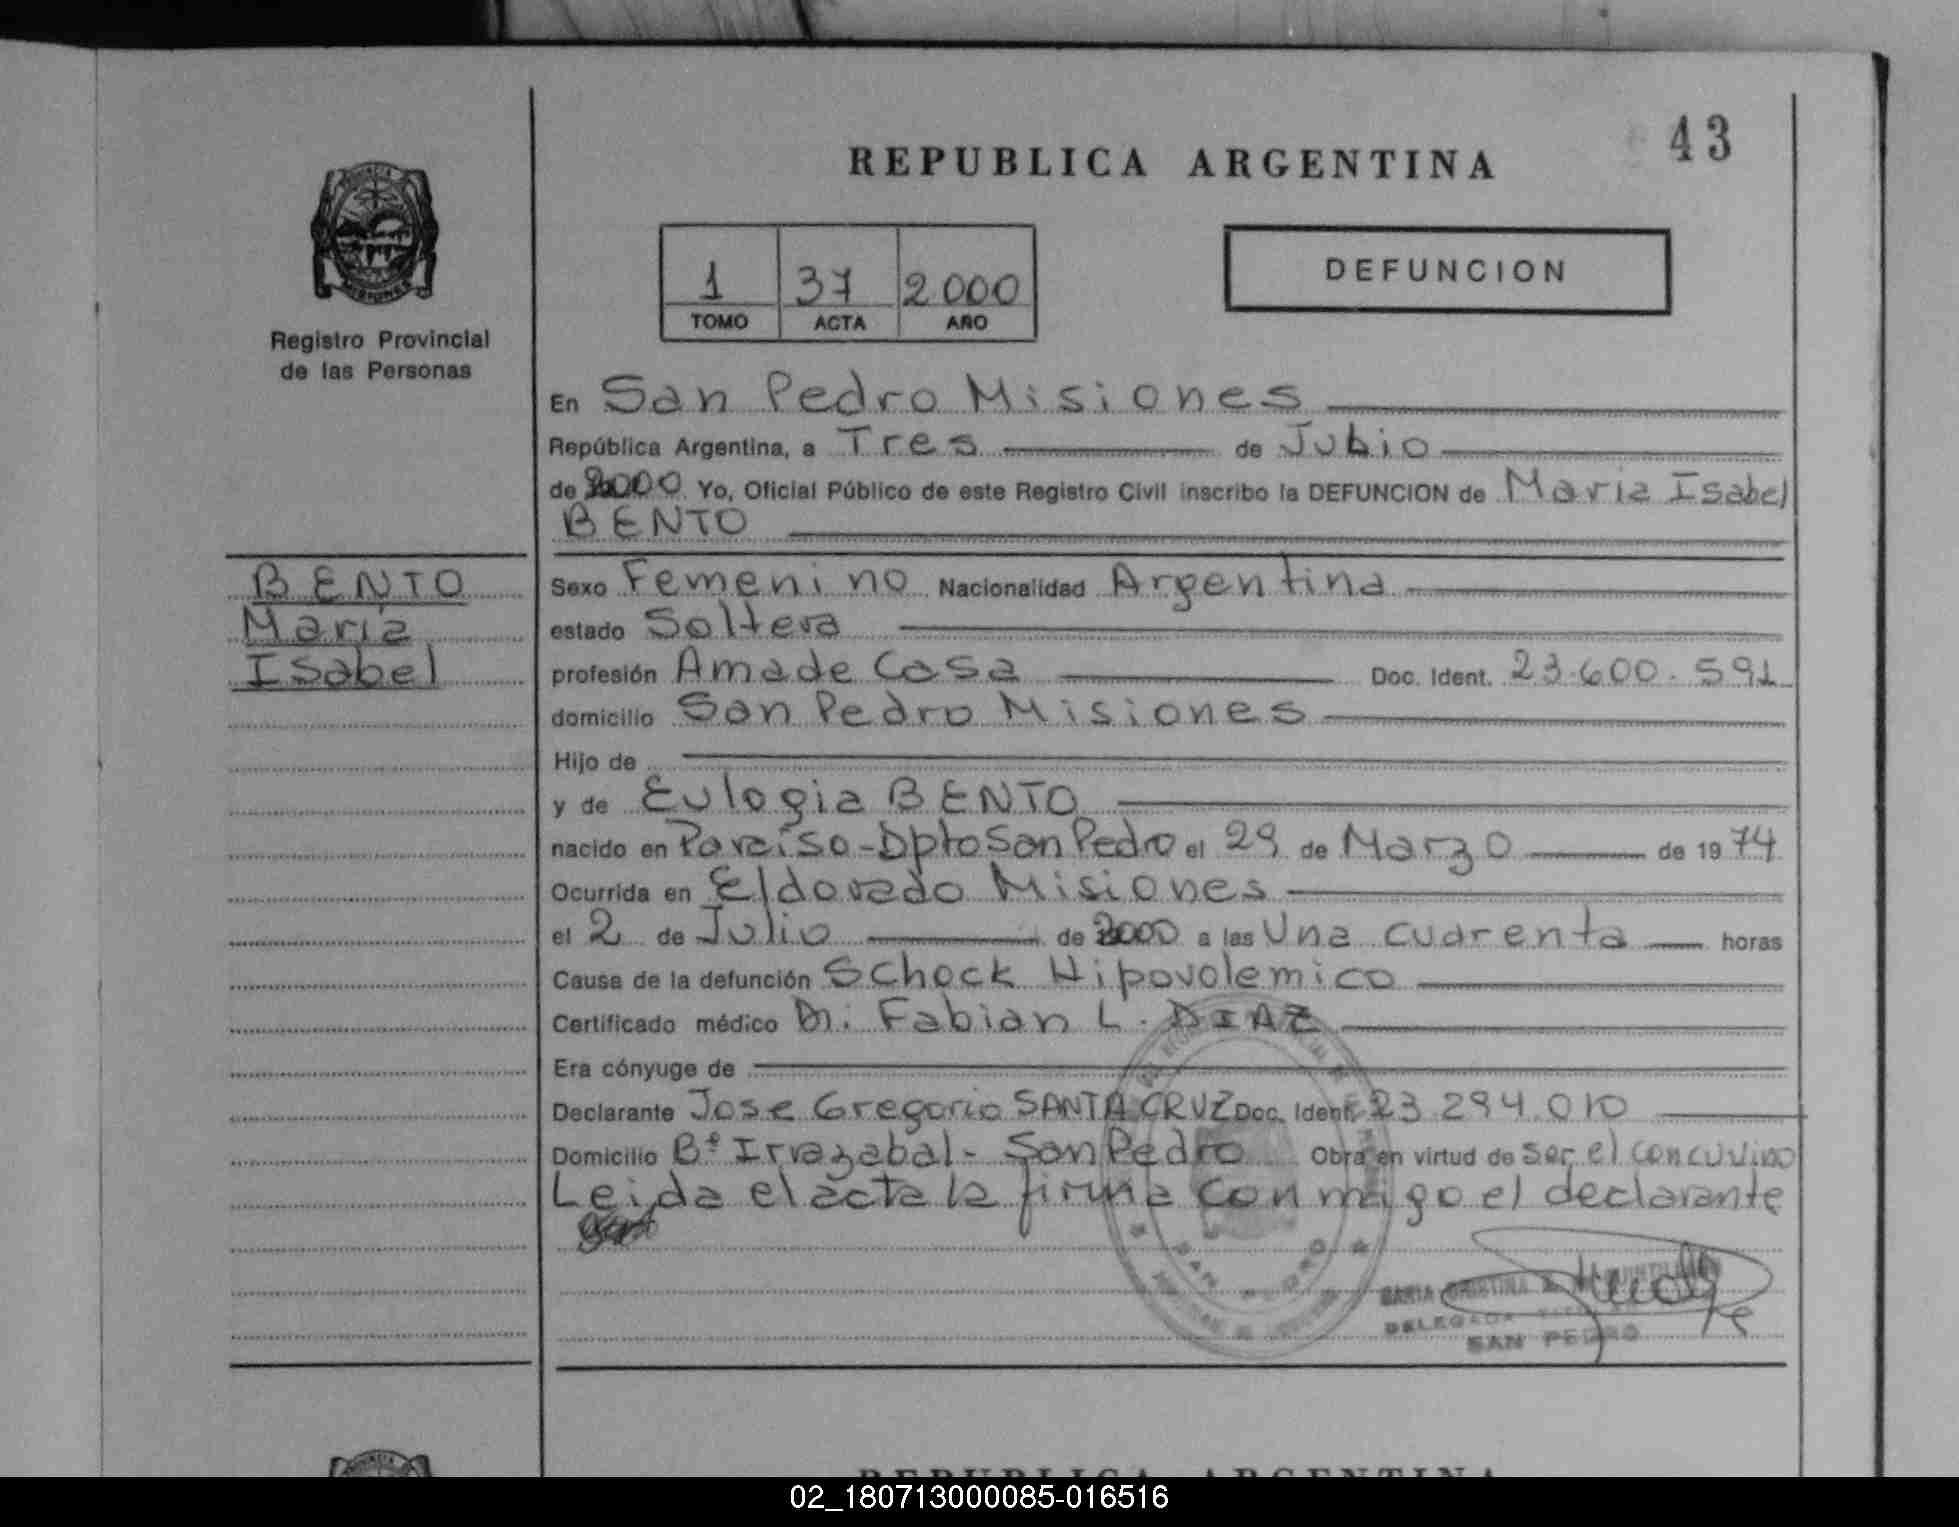 43
REPUBLICA ARGENTINA
1 37 2000
TOMO ACTA AÑO
DEFUNCION
Registro Provincial
de las Personas
En San Pedro Misiones
República Argentina, a Tres de Julio
de 2000 Yo, Oficial Público de este Registro Civil inscribo la DEFUNCION de Maria Isabel
BENTO
BENTO
Maria
Isabel
Sexo Femenino Nacionalidad Argentina
estado Soltera
profesión Ama de Casa Doc. Ident. 23.600.591
domicilio San Pedro Misiones
Hijo de
y de Eulogia BENTO
nacido en Paraíso-Dpto San Pedro el 29 de Marzo de 1974
Ocurrida en Eldorado Misiones
el 2 de Julio de 2000 a las Una cuarenta horas
Causa de la defunción Schock Hipovolemico
Certificado médico Dr. Fabian L. DIAZ
Era cónyuge de
Declarante Jose Gregorio SANTA CRUZ Doc. Ident. 23.294.010
Domicilio Bº Irrazabal - San Pedro Obra en virtud de ser el concuvino
Leida el acta la firma con migo el declarante
SAN PEDRO
MARIA CRISTINA
DELEGADA
SAN PEDRO
REPUBLICA ARGENTINA
02_180713000085-016516